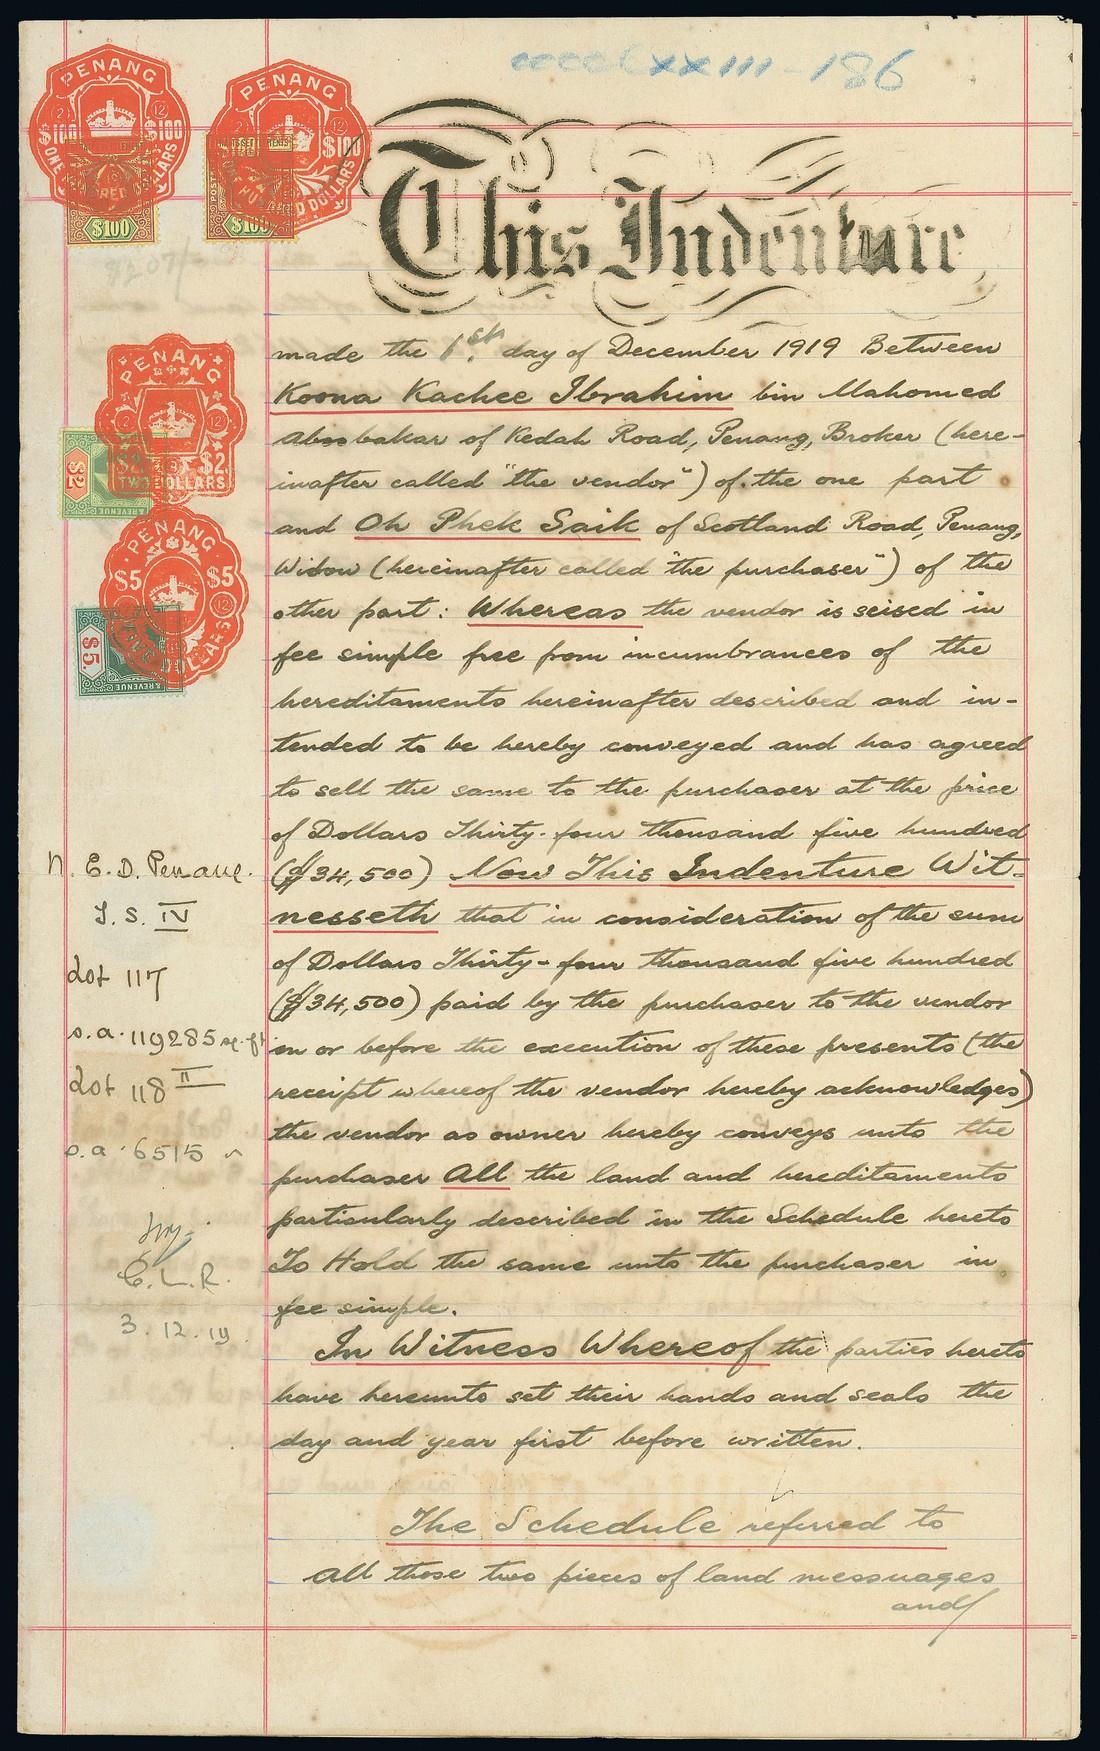 xxiii - 186
PENANG
$100 $100
$100
PENANG
$100
$100
This Indenture
PENANG
$2 $2
TWO DOLLARS
$2
& REVENUE
PENANG
$5 $5
FIVE DOLLARS
$5.
& REVENUE
made the 1st. day of December 1919 Between
Koona Kachee Ibrahim bin Mahomed
Aboobakar of Kedah Road, Penang, Broker (here-
inafter called "the vendor") of the one part
and Oh Phek Saik of Scotland Road, Penang,
Widow (hereinafter called "the purchaser") of the
other part: Whereas the vendor is seised in
fee simple free from incumbrances of the
hereditaments hereinafter described and in-
tended to be hereby conveyed and has agreed
to sell the same to the purchaser at the price
of Dollars Thirty-four thousand five hundred
($34,500) Now This Indenture Wit-
nesseth that in consideration of the sum
of Dollars Thirty-four thousand five hundred
($34,500) paid by the purchaser to the vendor
on or before the execution of these presents (the
receipt whereof the vendor hereby acknowledges)
the vendor as owner hereby conveys unto the
purchaser All the land and hereditaments
particularly described in the Schedule hereto
To Hold the same unto the purchaser in
fee simple.
In Witness Whereof the parties hereto
have hereunto set their hands and seals the
day and year first before written.
The Schedule referred to
All those two pieces of land messuages
and/
N. E. D. Penang.
T. S. IV
Lot 117
s.a. 119285 sq. ft
Lot 118 II
s.a. 6515 "
C. L. R.
3.12.19